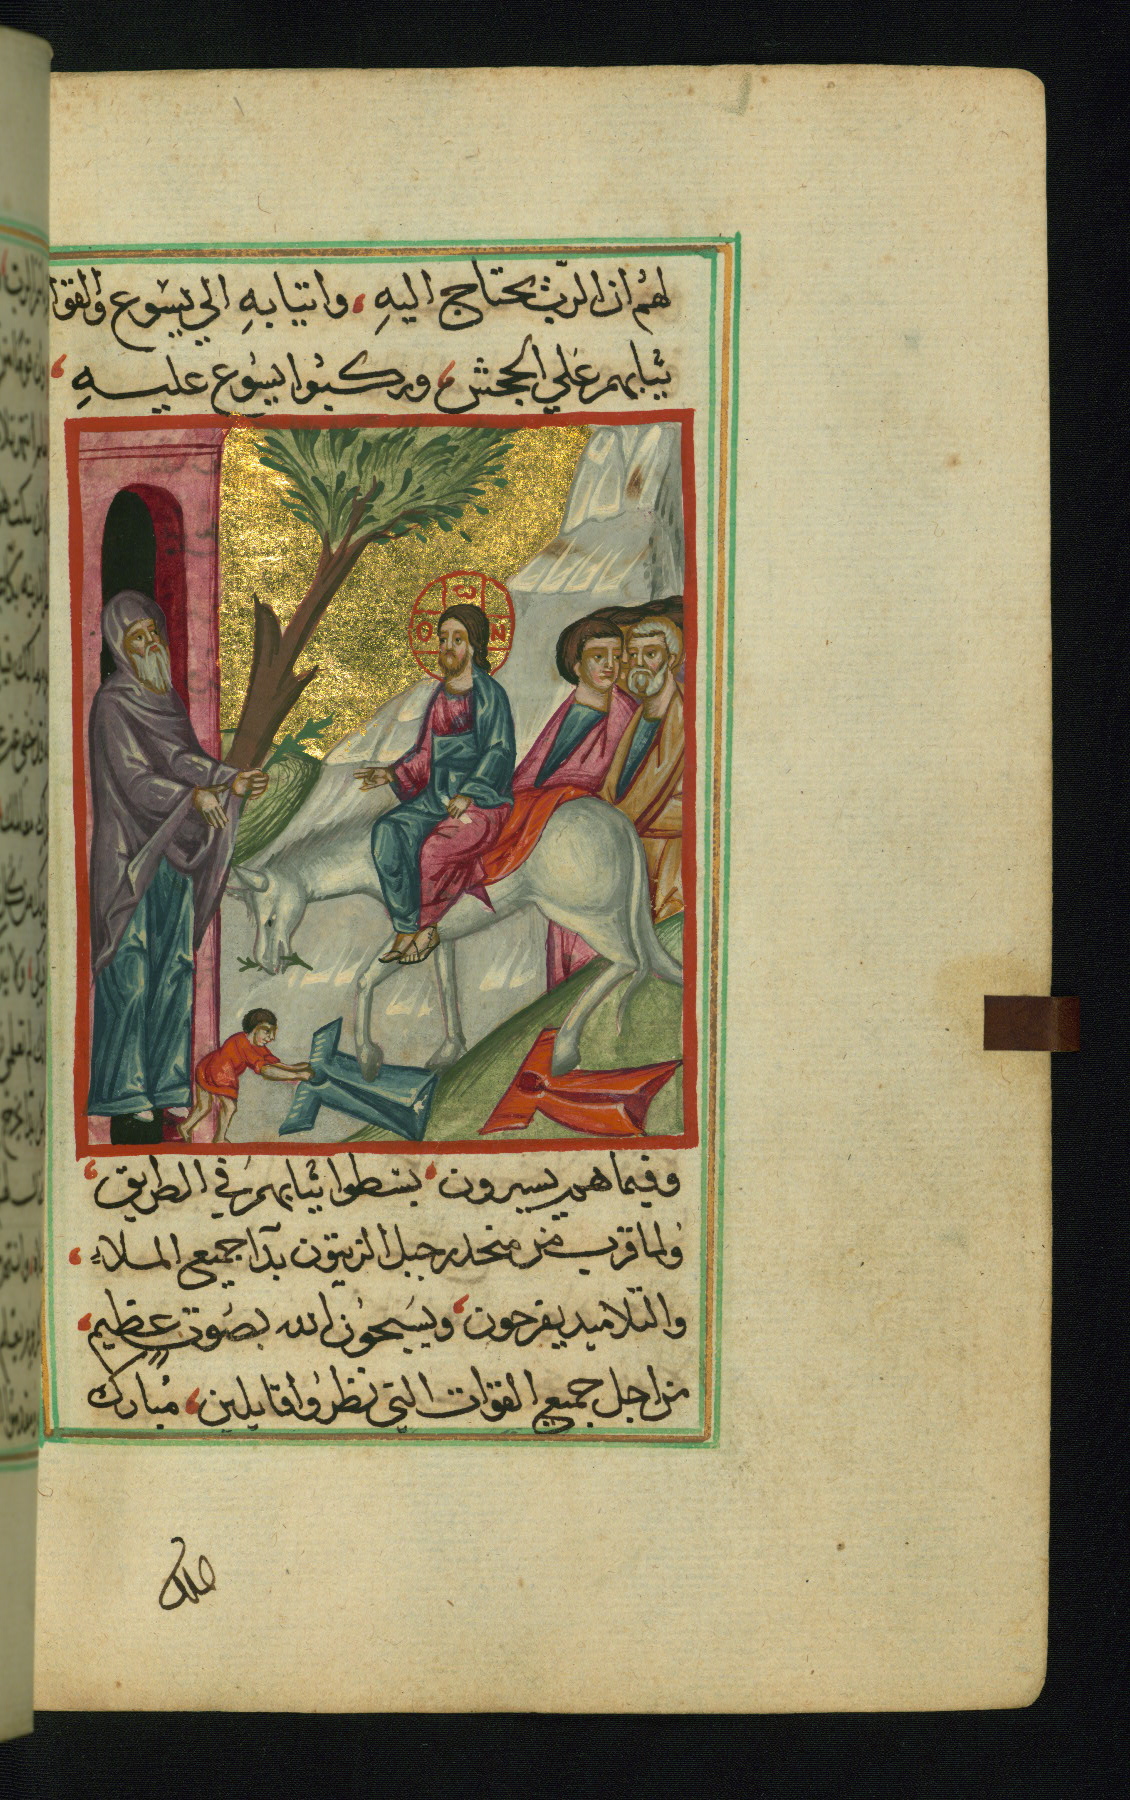 لهُم ان الربّ يحتاج اليهِ، واتيا بهِ الي يسوع والقوا
ثيابهم عَلي الجحش، وركبُوا يسُوع عليهِ،
Ο ω Ν
وفيما هم يسيرون، بسَطوا ثيابهم في الطريق،
ولما قرب من منحدر جبل الزيتون بدا جميع الملاء،
والتلاميد يفرحون، ويسَبحُون الله بصَوت عظيم،
من اجل جميع القوات التي نظرُوا قايلين، مُبارك
الملك